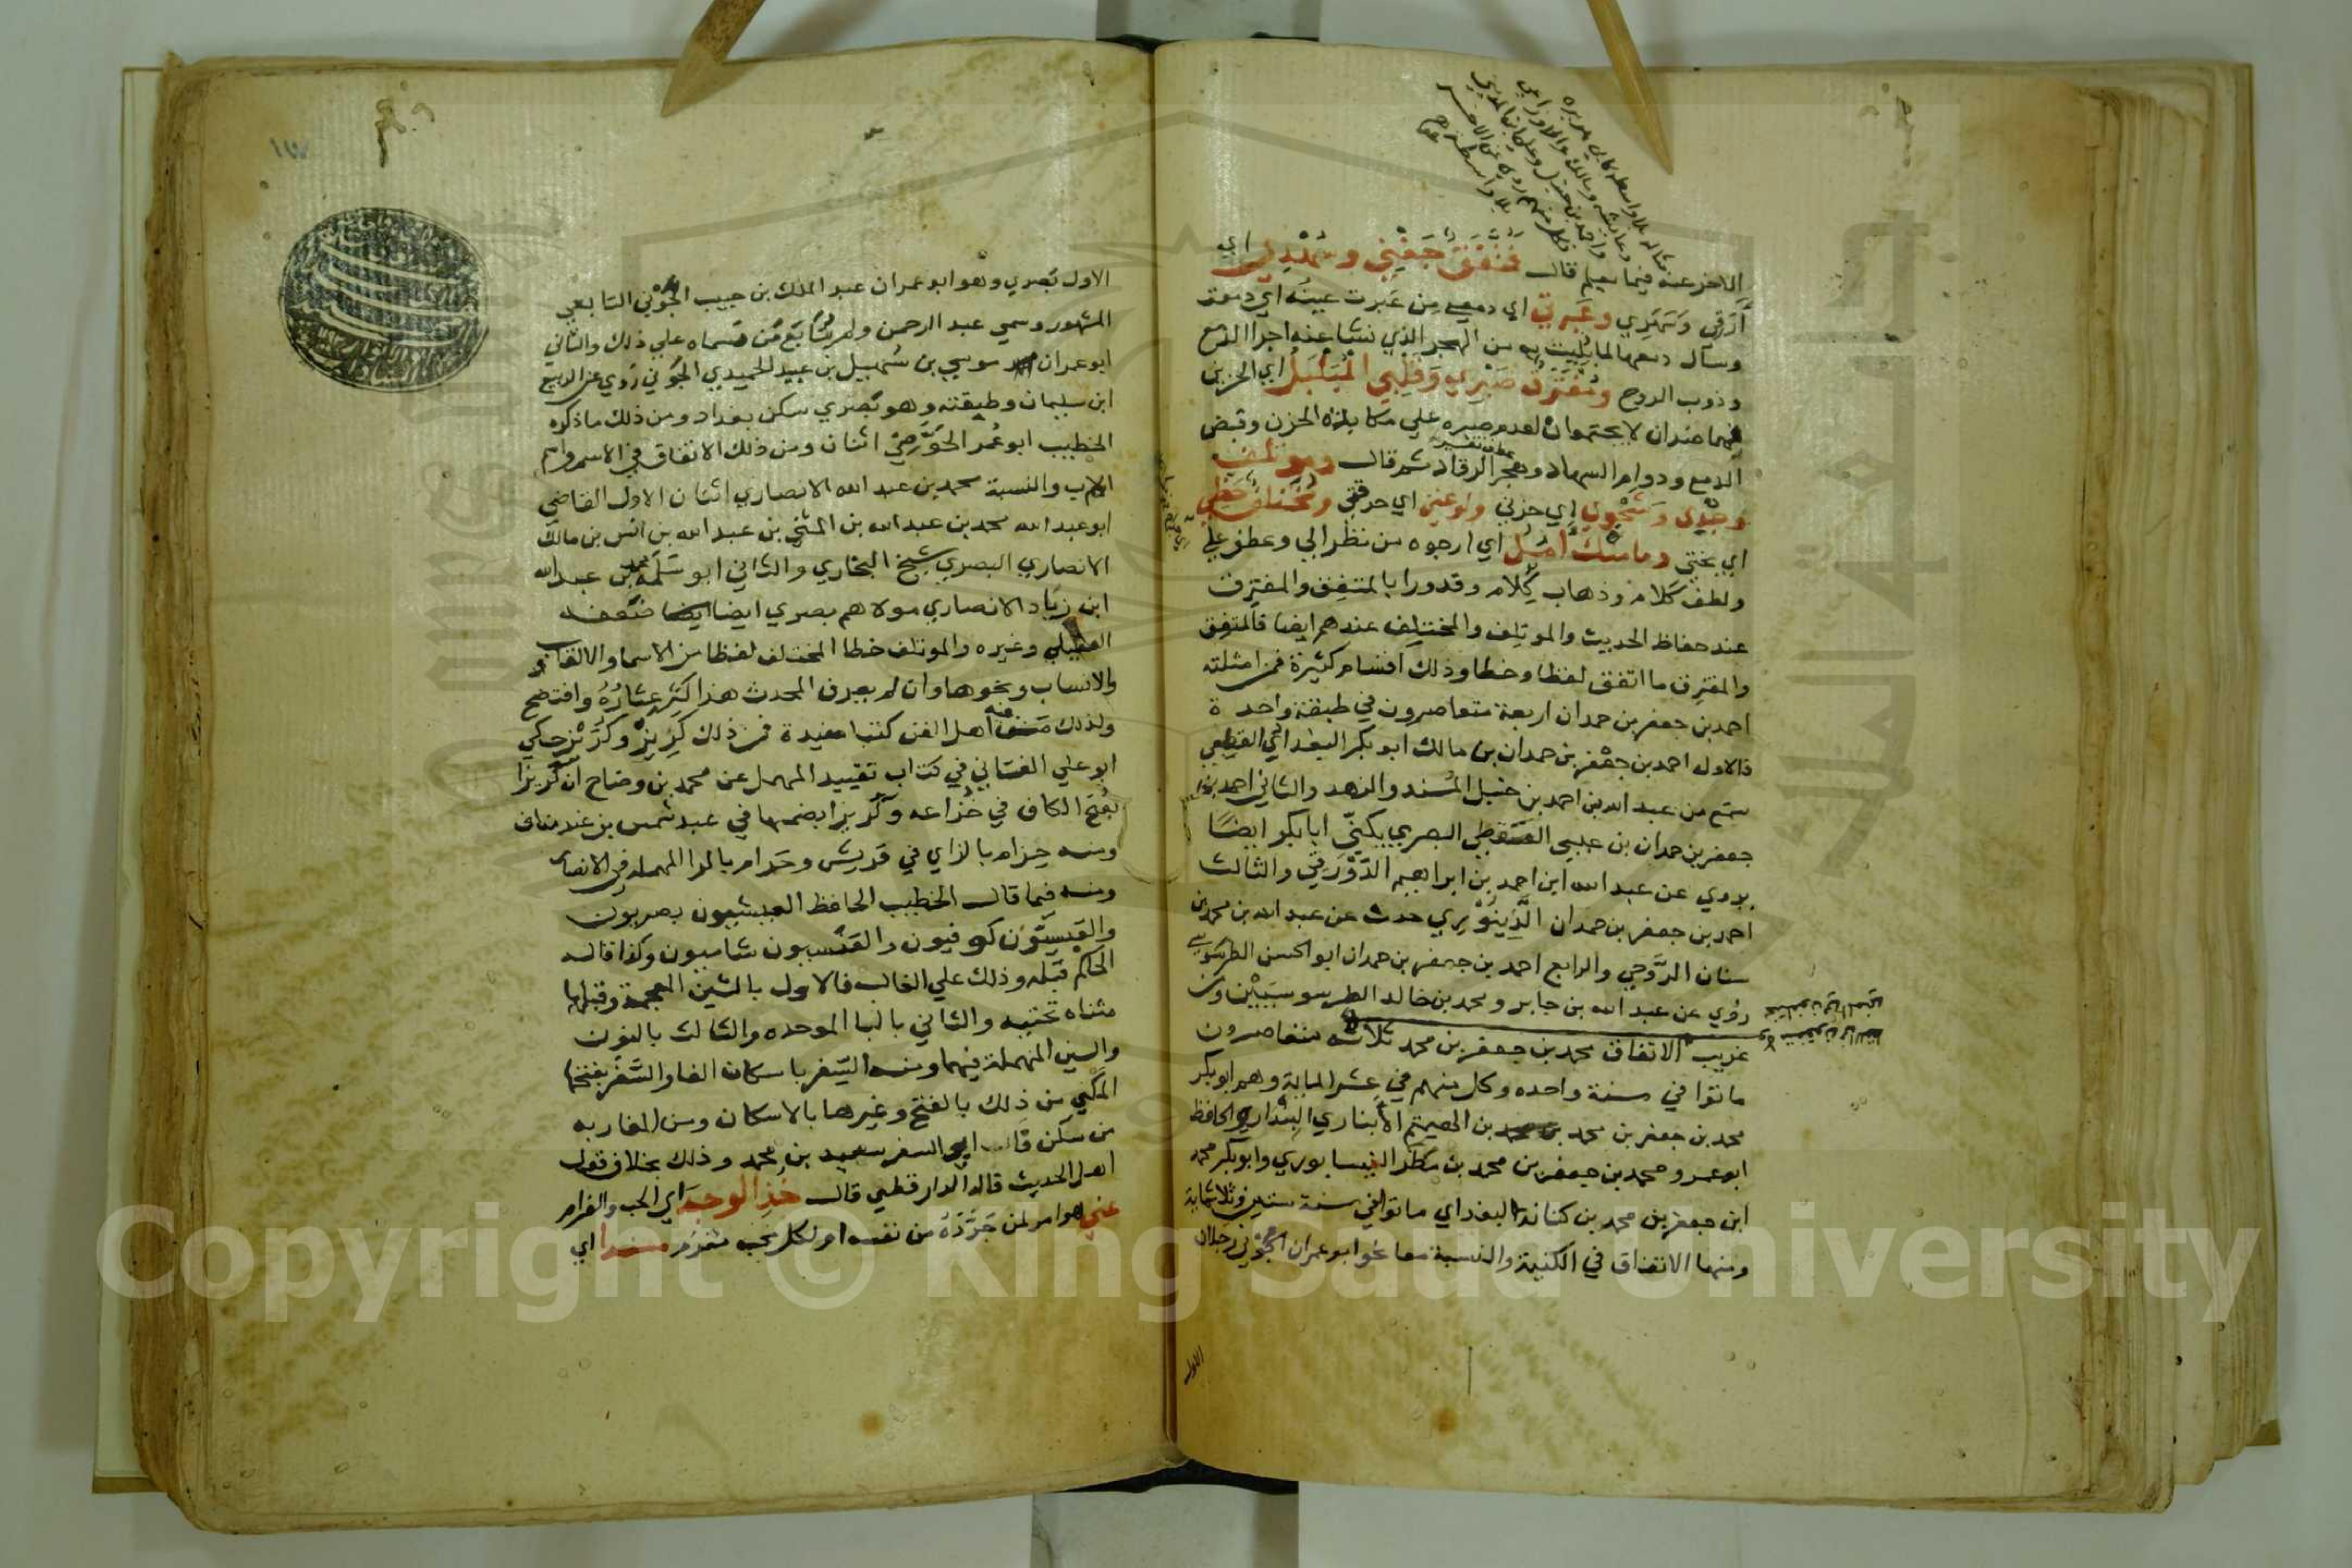 مثاله بلا واسطة كابي هريره
وعايشه ومالك والاوزاعي
واحمد بن حنبل وعلي بن المديني
فكل منهم روي عن الاخر
بلا واسطة
الاخر عنه فيما يعلم قال فمتفق جفني وسهدي اي
أرقي وسهري وعبرتي اي دمعي من عبرت عينه اي دمعت
وسال دمعها لما بليت به من الهجر الذي نشا عنه اجرا الدمع
وذوب الروح ومفترق صبري وقلبي المبلبل اي الحزين
فهما ضدان لا يجتمعان لعدم صبره علي مكابدة الحزن وقبض
الدمع ودوام السهاد وهجر الرقاد ثم قال وموتلف
وجدي وشجوي اي حزني ولوعتي اي حرقتي ومختلف حظي
اي بختي وما منك آمل اي ارجوه من نظر الي وعطف علي
ولطف كلام وذهاب كلام وقد ورا بالمتفق والمفترق
عند حفاظ الحديث والموتلف والمختلف عندهم ايضا فالمتفق
والمفترق ما اتفق لفظا وخطا وذلك اقسام كثيرة فمن امثلته
احمد بن جعفر بن حمدان اربعة متعاصرون في طبقة واحدة
فالاول احمد بن جعفر بن حمدان بن مالك ابو بكر البغدادي القطيعي
سمع من عبد الله بن احمد بن حنبل المسند والزهد والثاني احمد بن
جعفر بن حمدان بن عيسي السقطي البصري يكني ابا بكر ايضا
يروي عن عبد الله ابن احمد بن ابراهيم الدورقي والثالث
احمد بن جعفر بن حمدان الدينوري حدث عن عبد الله بن محمد بن
سنان الروحي والرابع احمد بن جعفر بن حمدان ابو الحسن الطرسوسي
روي عن عبد الله بن جابر ومحمد بن خالد الطرسوسيين ومن
غريب الاتفاق محمد بن جعفر بن محمد ثلاثه متعاصرون
ماتوا في سنة واحده وكل منهم في عشر الماية وهم ابو بكر
محمد بن جعفر بن محمد بن الهيثم الأنباري البندار والحافظ
ابو عمرو محمد بن جعفر بن محمد بن مطر النيسابوري وابو بكر محمد
ابن جعفر بن محمد بن كنانة البغدادي ماتوا في سنة ستين وثلاثماية
ومنها الاتفاق في الكنية والنسبة معا نحو ابو عمران الجوني رجلان
الاول
الاول بصري وهو ابو عمران عبد الملك بن حبيب الجوني التابعي
المشهور وسمي عبد الرحمن ولم يتابع من سماه علي ذلك والثاني
ابو عمران موسي بن سهيل بن عبد الحميد الجوني روي عن الربيع
ابن سليمان وطبقته وهو بصري سكن بغداد ومن ذلك ما ذكره
الخطيب ابو عمر الحوضي اثنان ومن ذلك الاتفاق في الاسم واسم
الاب والنسبة محمد بن عبد الله الانصاري اثنان الاول القاضي
ابو عبد الله محمد بن عبد الله بن المثني بن عبد الله بن انس بن مالك
الانصاري البصري شيخ البخاري والثاني ابو سلمة محمد بن عبد الله
ابن زياد الانصاري مولاهم بصري ايضا ضعفه
العقيلي وغيره والموتلف خطا المختلف لفظا من الاسما والالقاب
والانساب ونحوها وان لم يعرف المحدث هذا كثر عثاره وافتضح
ولذلك صنف فيه اهل الفن كتبا مفيدة فمن ذلك كريز وكريز حكي
ابو علي الغساني في كتاب تقييد المهمل عن محمد بن وضاح ان كريزا
بفتح الكاف في خزاعه وكريزا بضمها في عبد شمس بن عبد مناف
ومنه حزام بالزاي في قريش وحرام بالرا المهملة في الانصار
ومنه فيما قال الخطيب الحافظ العيشيون بصريون
والعبسيون كوفيون والعنسيون شاميون وكذا قاله
الحاكم قبله وذلك علي الغالب فالاول بالشين المعجمة وقبلها
مثناه تحتيه والثاني بالبا الموحده والثالث بالنون
والسين المهملة فيهما ومنه السفر باسكان الفا والسفر بفتحها
المكني من ذلك بالفتح وغيرها بالاسكان ومن المغاربه
من سكن فا ابي السفر سعيد بن محمد وذلك بخلاف قول
اهل الحديث قاله الدارقطني قال خذ الوجد اي الحب والغرام
عني هو امر لمن جرده من نفسه او لكل محب مغرم مسندا اي